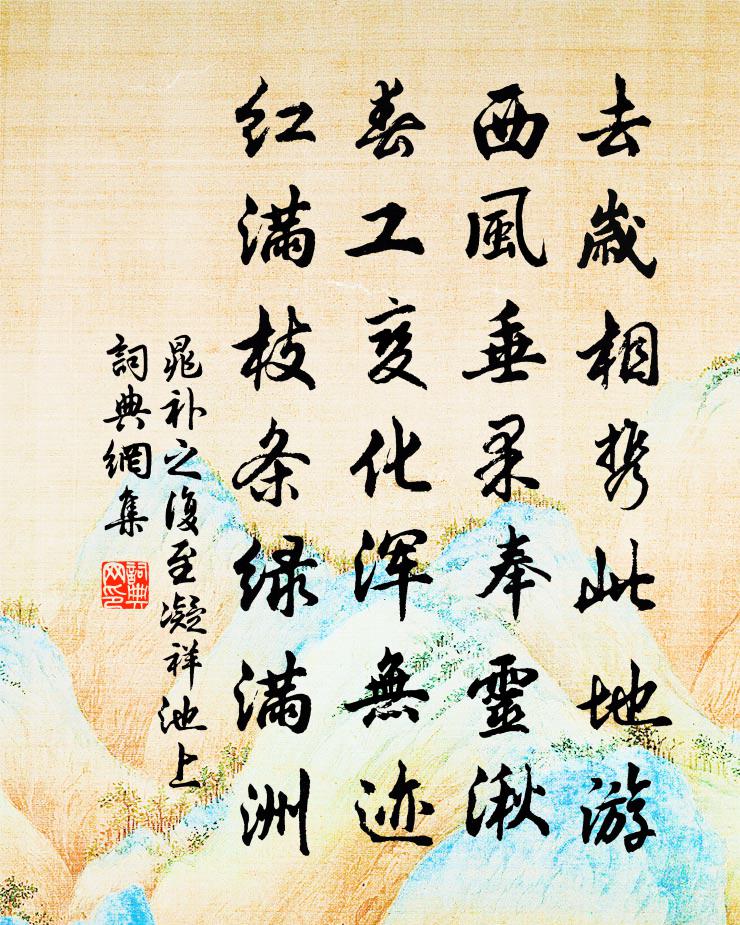 去歲相携此地游
西風垂果奉靈湫
春工变化浑無迹
红满枝条绿满洲
晁补之復至凝祥池上
詞典網集
詞典网印